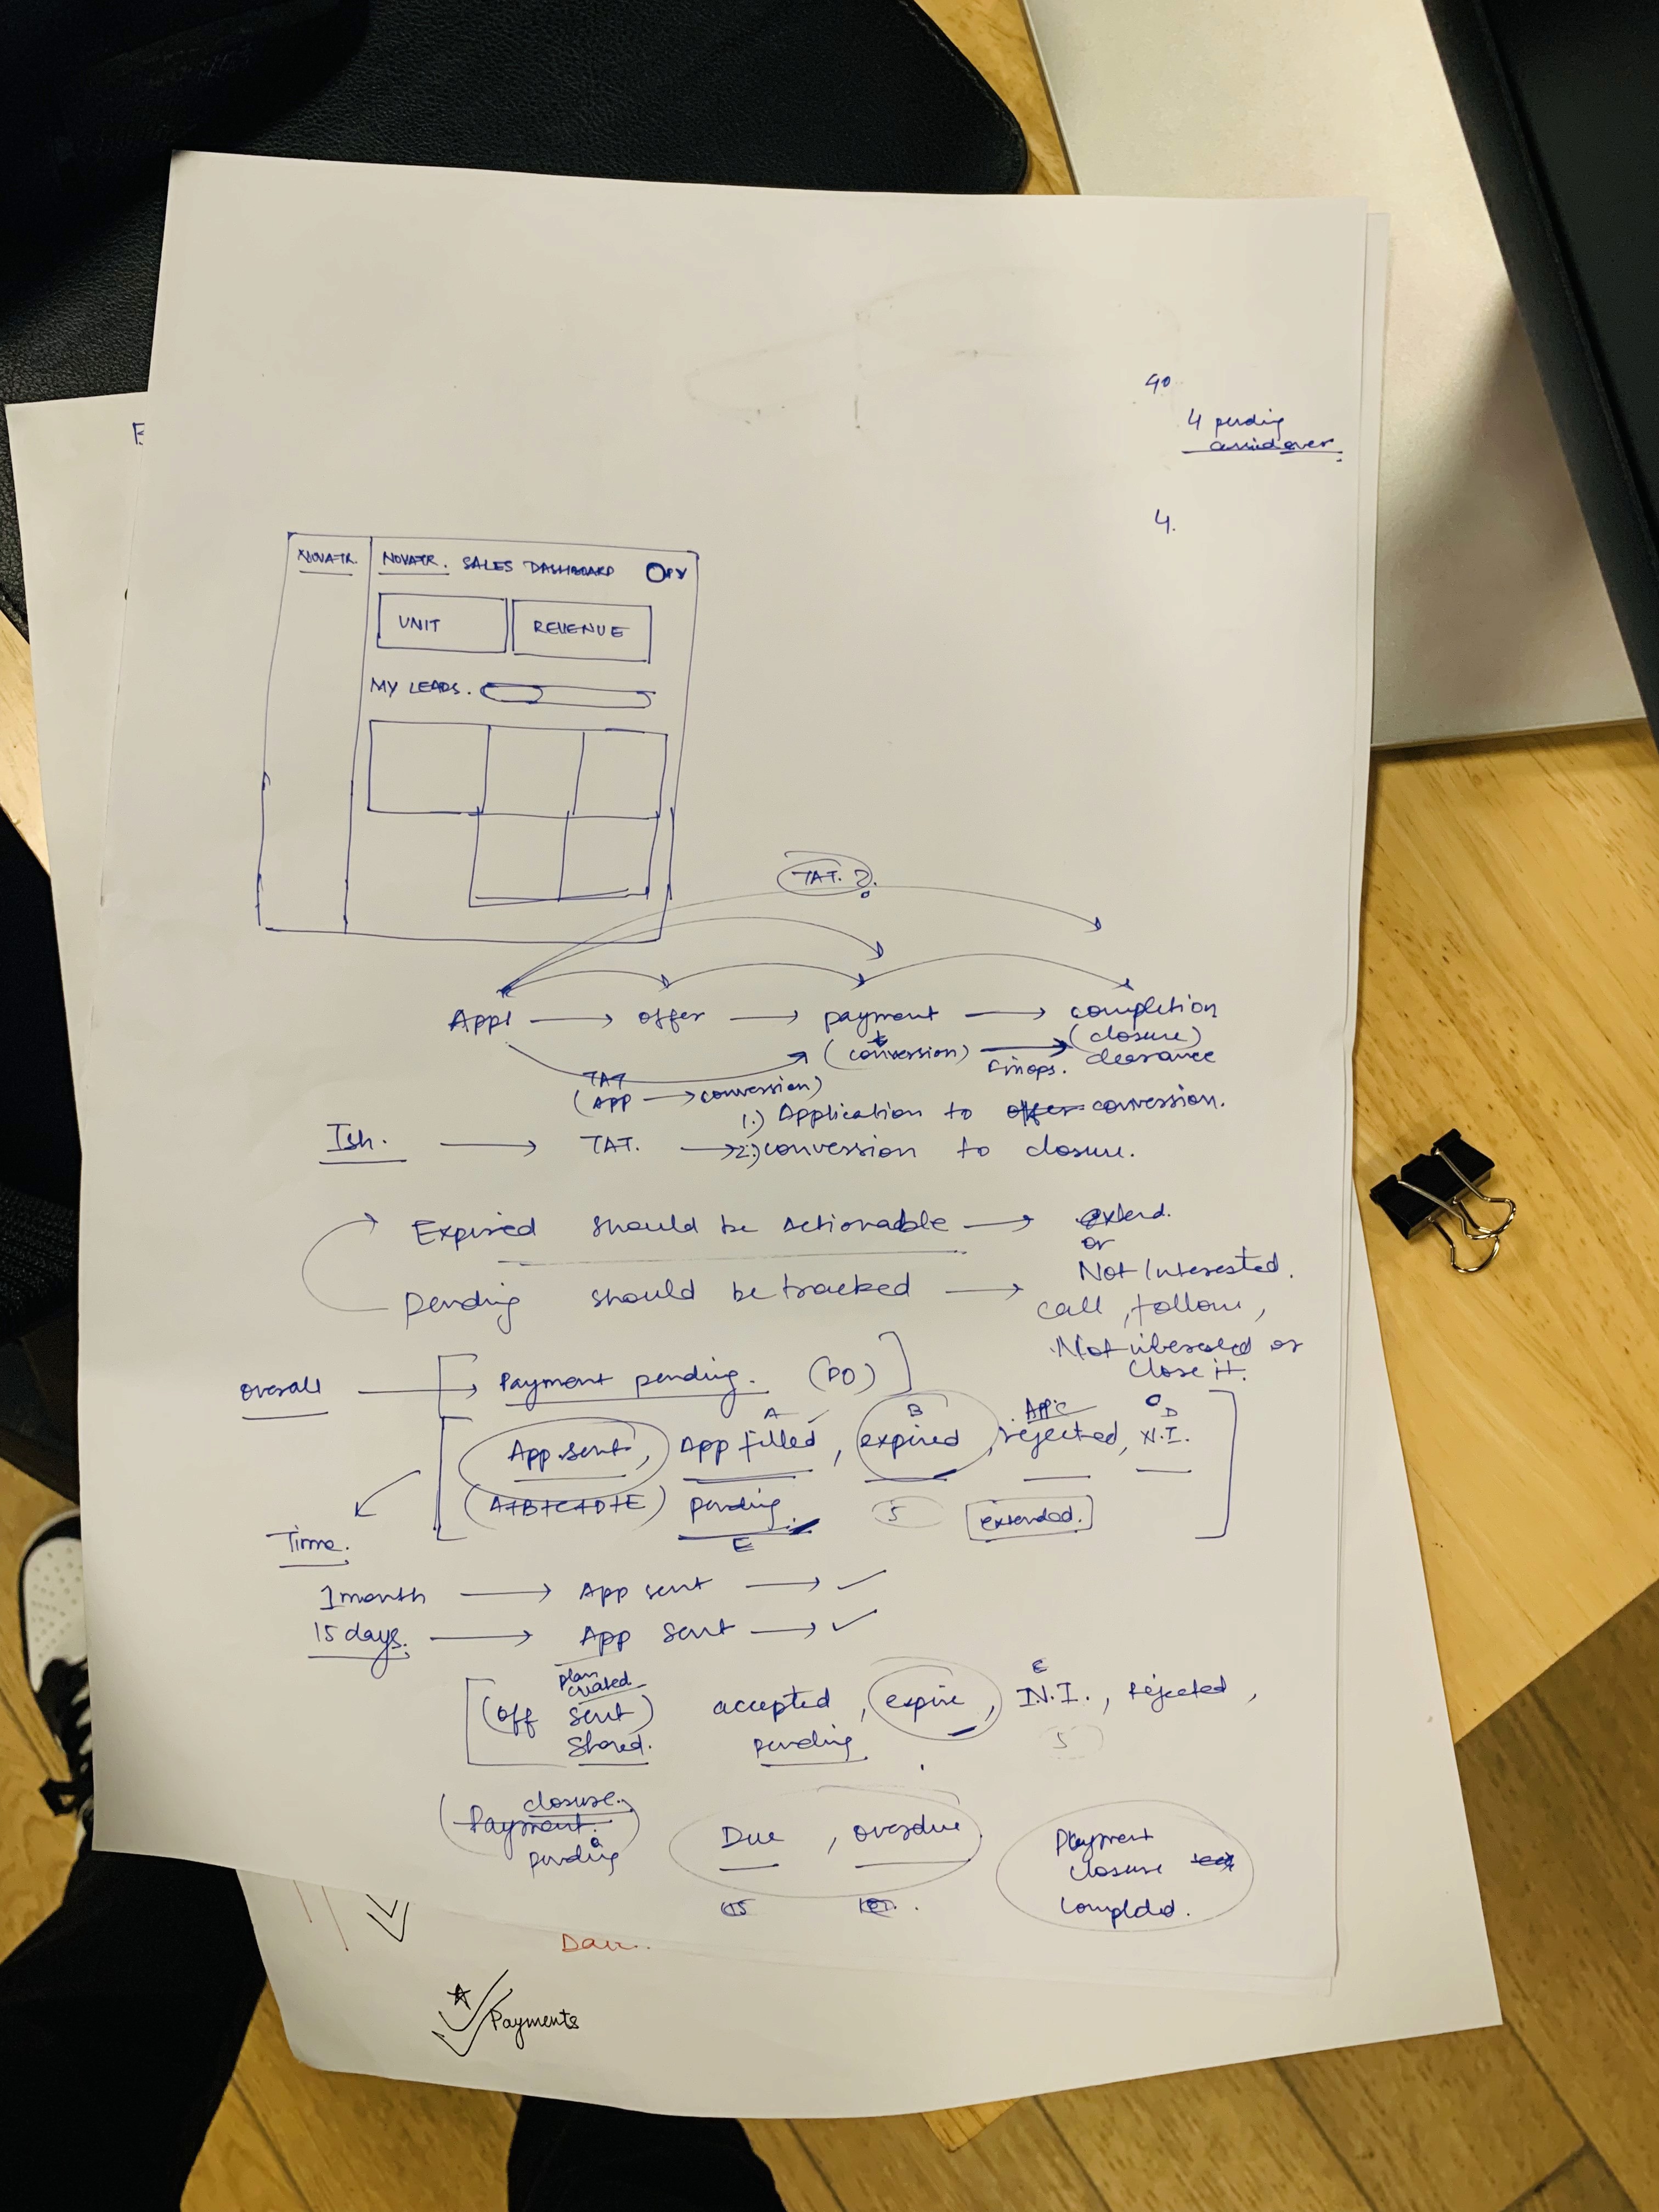 40
4 pending
4.
NOVATR.
NOVATR. SALES DASHBOARD
UNIT
REVENUE
MY LEADS.
TAT. ?.
Appl → offer → payment → completion
(conversion) → (closure)
Finops. clearance
TAT
(APP → conversion)
1.) Application to offer conversion.
Ish. → TAT. → 2.) conversion to closure.
Expired should be actionable → extend.
or
Not Interested.
Pending should be tracked → call, follow,
Not interested or
close it.
overall → Payment pending. (PO)
A B App C D
App sent, App filled, expired, rejected, N.I.
(A+B+C+D+E) pending. 5 extended.
E
Time.
1 month → App sent → ✓
15 days. → App sent → ✓
plan
created E
(Off sent) accepted, expire, N.I., rejected,
Shared. pending 5
closure.
Payment.
pending
Due, overdue
Payment
closure
completed.
Payments